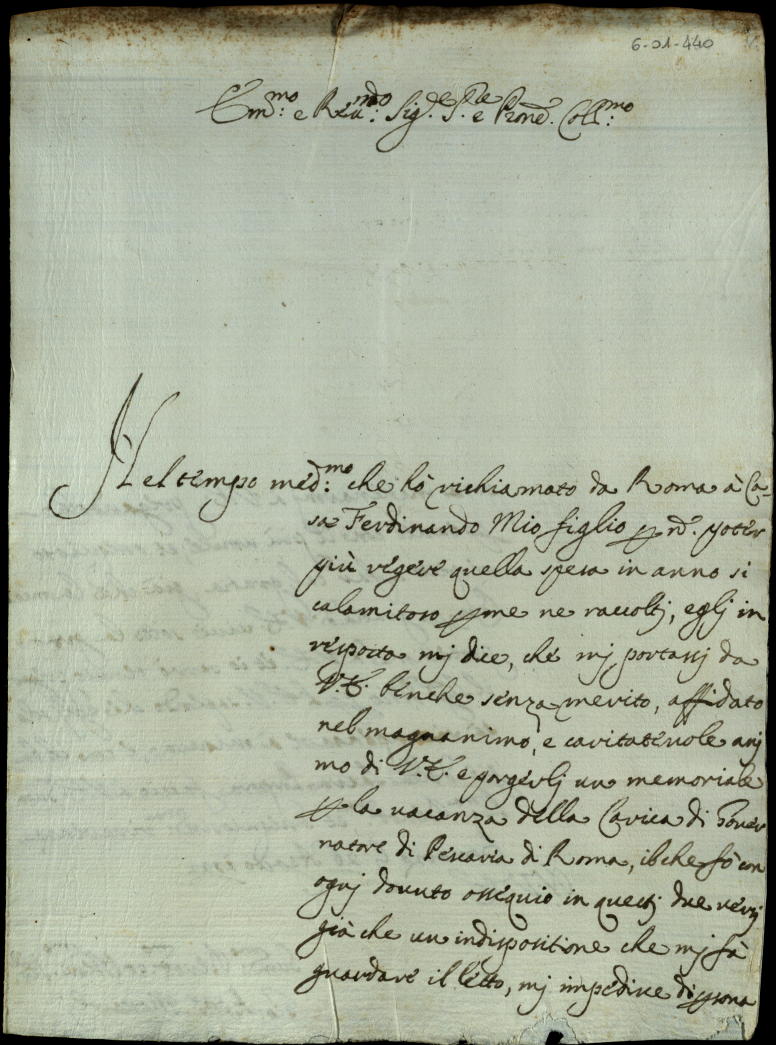 6-01-440
Em.mo e Reu.mo Sig.re P.re e Prone. Coll.mo
Nel tempo med.mo che hò richiamato da Roma à Ca-
sa Ferdinando Mio figlio p no. poter
più regere quella spesa in anno si
calamitoso pme ne raccoltj, eglj in
risposta mj dice, che mj portassj da
V.E. benche senza merito, affidato
nel magnanimo, e caritateuole anj
mo di V.E. e porgerlj un memoriale
p la vacanza della Carica di Gouer
natore di Pescaria di Roma, il che fò con
ognj douuto ossequio in questj due verzj
già che un indispositione che mj fà
guardare il letto, mj impedisce di psona